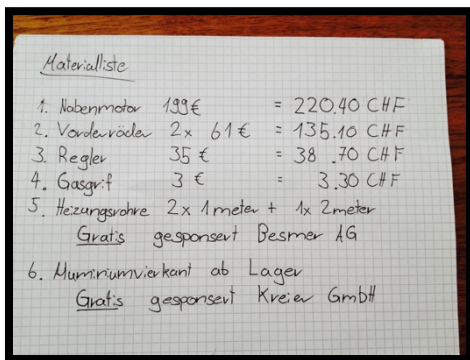 Materialliste
1. Nabenmotor 199€ = 220.40 CHF
2. Vorderräder 2x 61€ = 135.10 CHF
3. Regler 35 € = 38.70 CHF
4. Gasgrif 3 € = 3.30 CHF
5. Heizungsrohre 2x 1meter + 1x 2meter
Gratis gesponsert Besmer AG
6. Aluminiumvierkant ab Lager
Gratis gesponsert Kreier GmbH